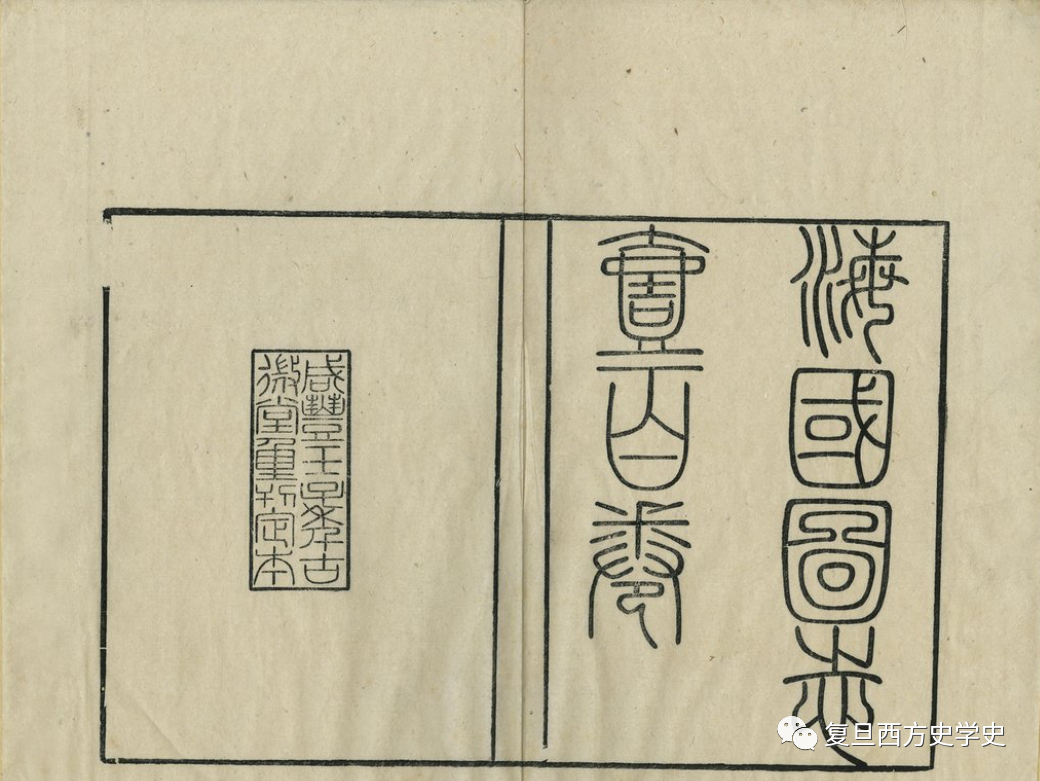 海國圖志
壹百卷
咸豐壬子年古
微堂重刊定本
复旦西方史学史